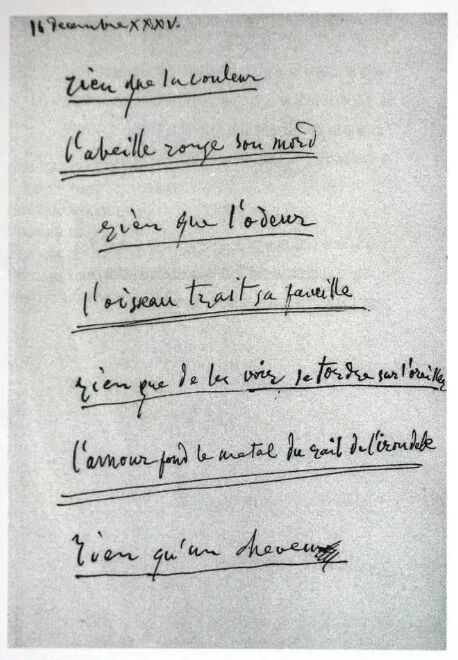 16 decembre XXXV.
rien que la couleur
l'abeille ronge son mord
rien que l'odeur
l'oiseau trait sa faucille
rien que de les voir se tordre sur l'oreiller
l'amour fond le metal du rail de l'irondele
rien qu'un cheveu